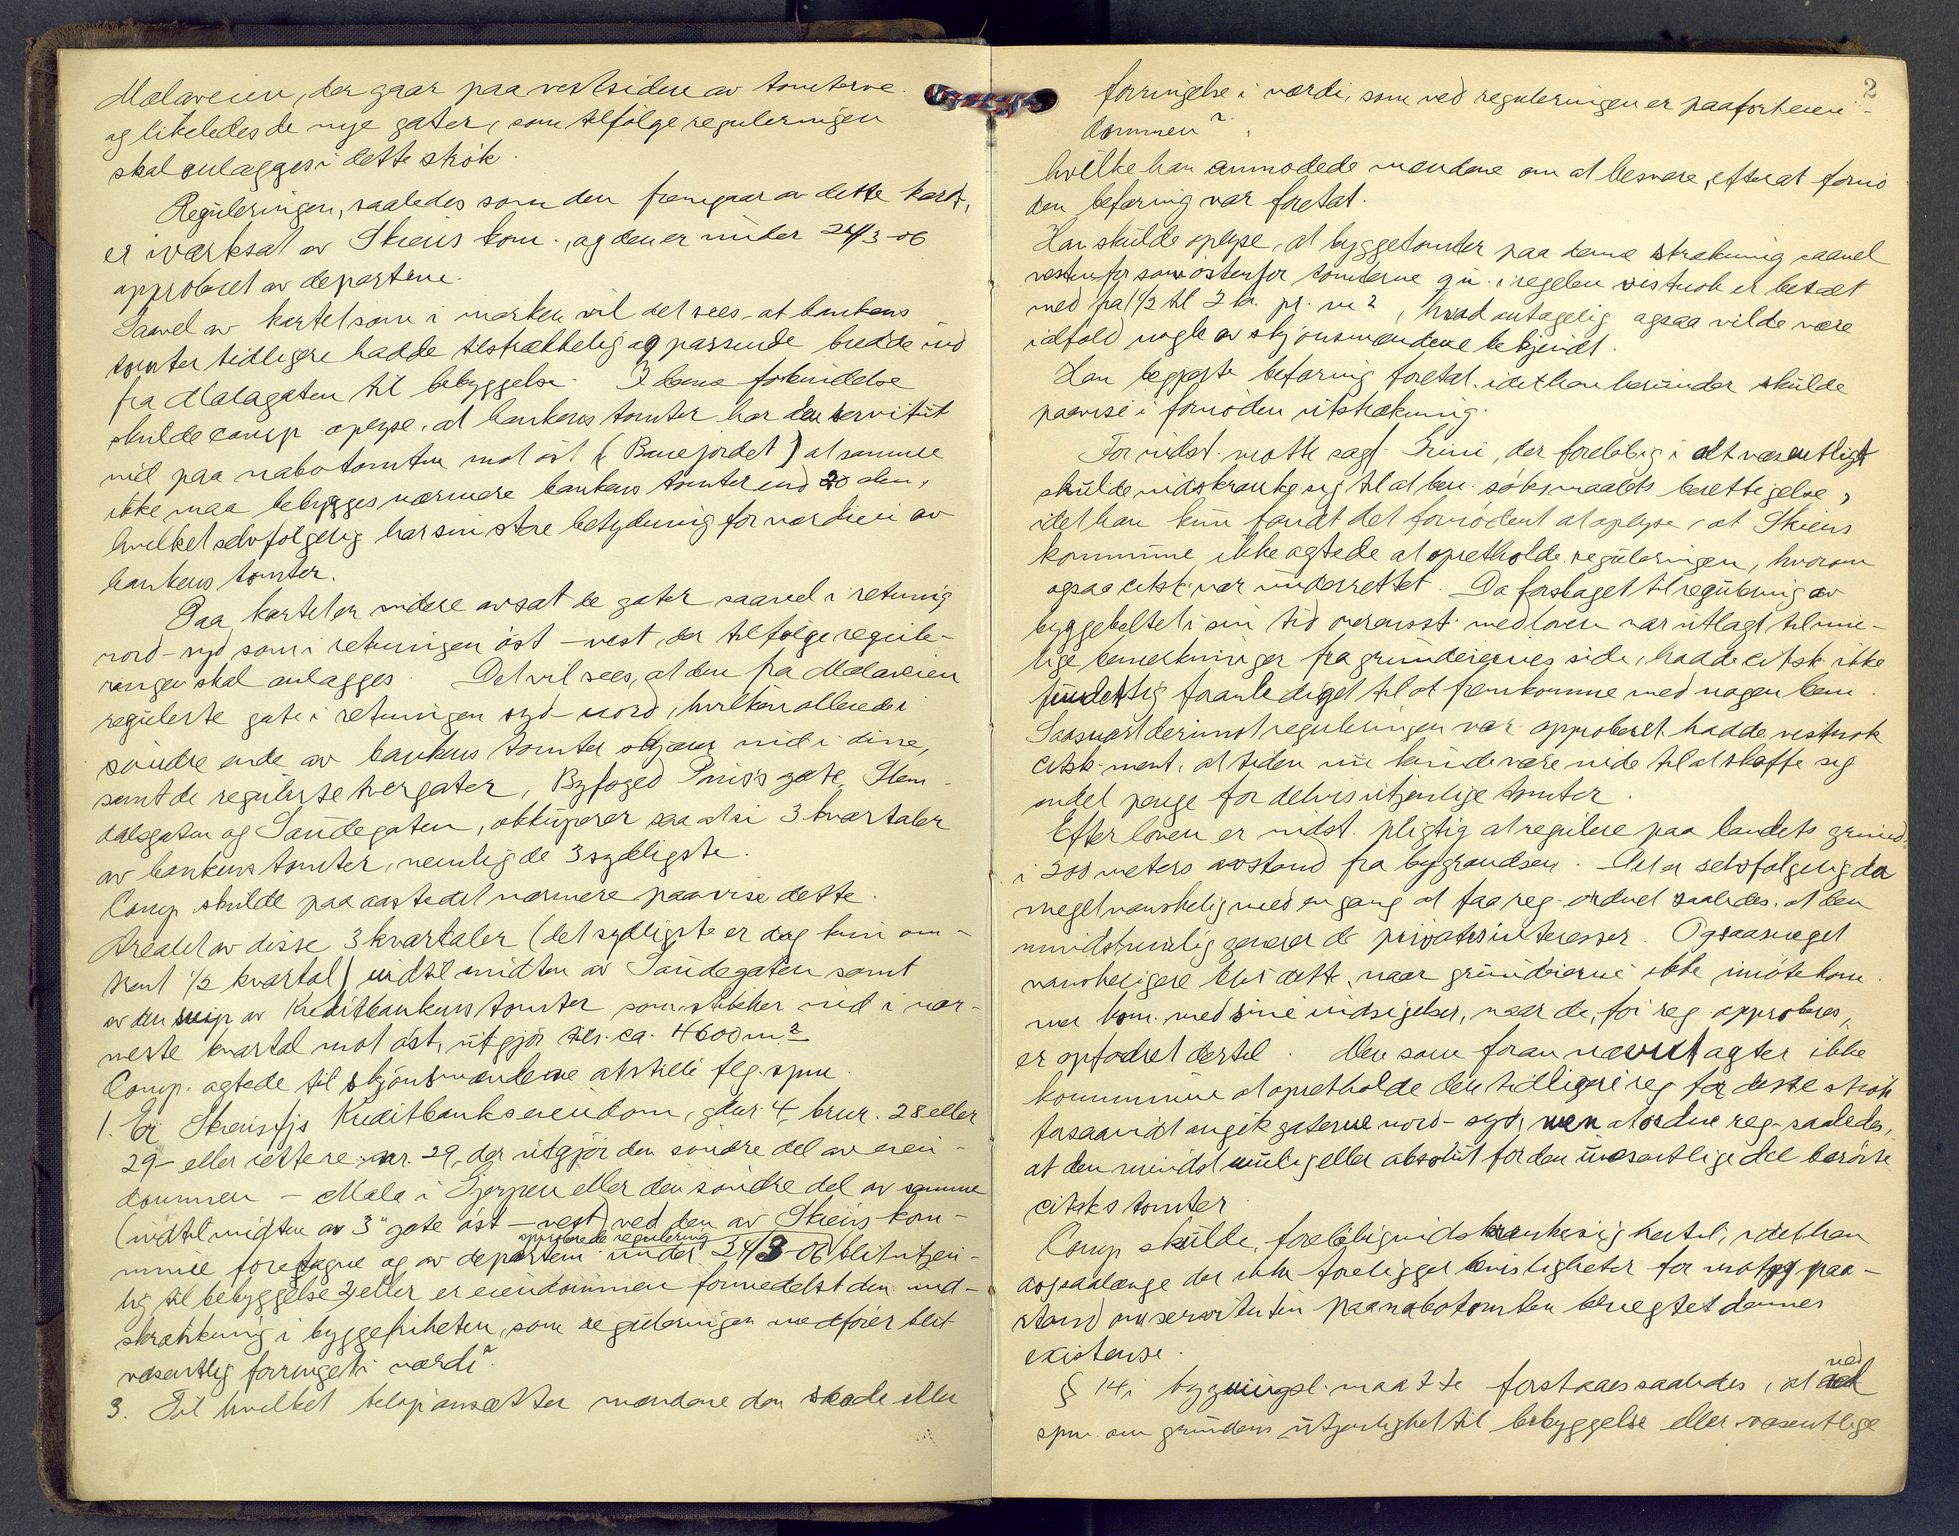 Mælaveien, der gaar paa vestsiden av tomterne.
og likeledes de nye gater, som tilfølge reguleringen
skal anlægges i dette strøk.
Reguleringen, saaledes som den fremgaar av dette kart,
er iværksat av Skiens kom., og den er under 24/3-06
approberet av departem.
Saavel av kartet som i marken vil det sees, at bankens
tomter tidligere hadde tilstrækkelig og passende bredde ind
fra Mælagaten til bebyggelse. I denne forbindelse
skulde comp. oplyse, at bankens tomter har den servitut
ind paa nabotomten mot øst (Banejordet) at samme
ikke maa bebygges nærmere bankens tomter end 20 alen,
hvilket selvfølgelig har sin store betydning for værdien av
bankens tomter.
Paa kartet er videre avsat de gater saavel i retning
nord-syd som i retningen øst-vest, der tilfølge regule-
ringen skal anlægges. Det vil sees, at den fra Mælaveien
regulerte gate i retningen syd-nord, hvilken allerede i
søndre ende av bankens tomter skjærer ind i disse,
samt de regulerte tvergater, Byfoged Preus's gate, Stem-
dalsgaten og Saudegaten, okkuperer saa at si 3 kvartaler
av bankens tomter, nemlig de 3 sydligste.
Comp. skulde paa aastedet nærmere paavise dette.
Arealet av disse 3 kvartaler (det sydligste er dog kun om-
trent 1/2 kvartal) indtil midten av Saudegaten samt
av den snip av Kreditbankens tomter som stikker ind i nær-
meste kvartal mot øst, utgjør tils. ca. 4600 m2
Comp. agtede til skjønsmændene at stille flg. spm.
1. Er Skiensfjs Kreditbanks eiendom, gnr. 4, brnr. 28 eller
29 - eller rettere nr. 29, der utgjør den søndre del av eien-
dommen - Mæla i Gjerpen eller den søndre del av samme
(indtil midten av 3" gate øst - vest) ved den av Skiens kom-
mune foretagne og av departem. under 24/3-06 approberede regulering blit utjen-
lig til bebyggelse 2) eller er eiendommen formedelst den ind-
skrænkning i byggefriheten, som reguleringen medfører blit
væsentlig forringet i værdi?
3. Til hvilket beløp ansætter mændene den skade eller
2
forringelse i værdi, som ved reguleringen er paaført eien-
dommen?
hvilke han anmodede mændene om at besvare, efterat fornø
den befaring var foretat.
Han skulde oplyse, at byggetomter paa denne strækning saavel
vestenfor som østenfor tomterne gn. i regelen vistnok er betalt
med fra 1 1/2 til 2 kr. pr. m2, hvad antagelig ogsaa vilde være
ialfald nogle av skjønsmændene bekjendt.
Han begjærte befaring foretat, idet han herunder skulde
paavise i fornøden utstrækning.
For indst. møtte sagf. Grini, der foreløbig i alt væsentligt
skulde indskrænke sig til at ben. søksmaalets berettigelse,
idet han kun fandt det fornødent at oplyse, at Skiens
kommune ikke agtede at opretholde reguleringen, hvorom
ogsaa citsk. var underrettet. Da forslaget til regulering av
byggebeltet i sin tid overensst. med loven var utlagt til mu-
lige bemerkninger fra grundeiernes side, hadde citsk. ikke
fundet sig foranlediget til at fremkomme med nogen bem.
Saasnart derimot reguleringen var approberet hadde vistnok
citsk. ment, at tiden nu kunde være inde til at skaffe sig
endel penge for delvis utjenlige tomter.
Efter loven er indst. pligtig at regulere paa landets grund
i 200 meters avstand fra bygrændsen. Det er selvfølgelig da
meget vanskelig med en gang at faa reg. ordnet saaledes, at den
mindst mulig generer de privates interesser. Ogsaa meget
vanskeligere blir dette, naar grundeierne ikke imøtekom
mer kom. med sine indsigelser, naar de, før reg. approberes,
er opfodret dertil. Men som foran nævnt agter ikke
kommune at opretholde den tidligere reg. for dette strøk
forsaavidt angik gaterne nord-syd, men at ordne reg. saaledes,
at den mindst mulig eller absolut for den uvæsentlige del berører
citsks tomter.
Comp. skulde foreløbig indskrænke sig hertil, idet han
dog saalænge der ikke foreligger bevisligheter for motp. paa-
stand om servituten paa nabotomten benegtet dennes
existense.
§ 14 i bygningsl. maatte forstaaes saaledes, at ved
spm. om grundens utjenlighet til bebyggelse eller væsentlige